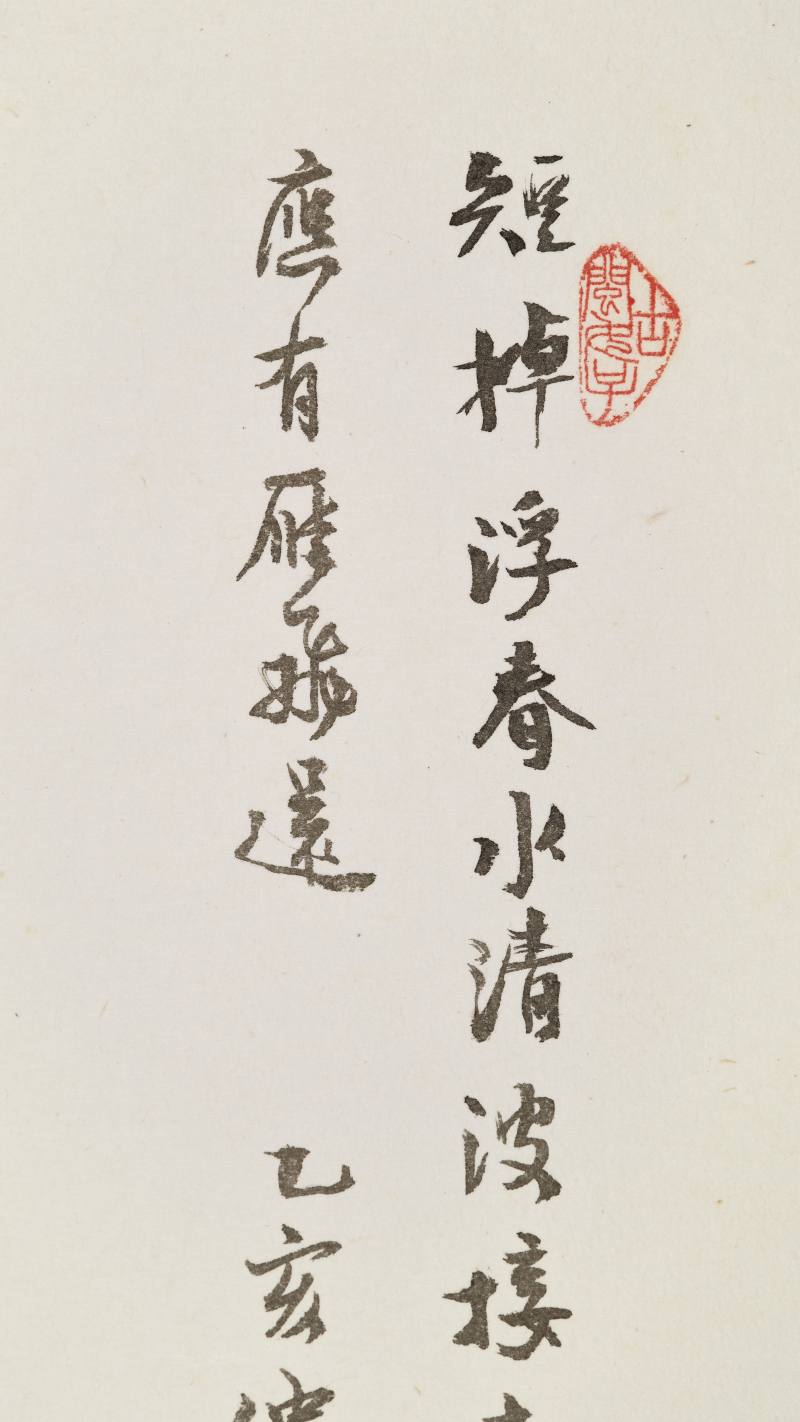 短掉浮春水清波接
應有雁飛還 乙亥